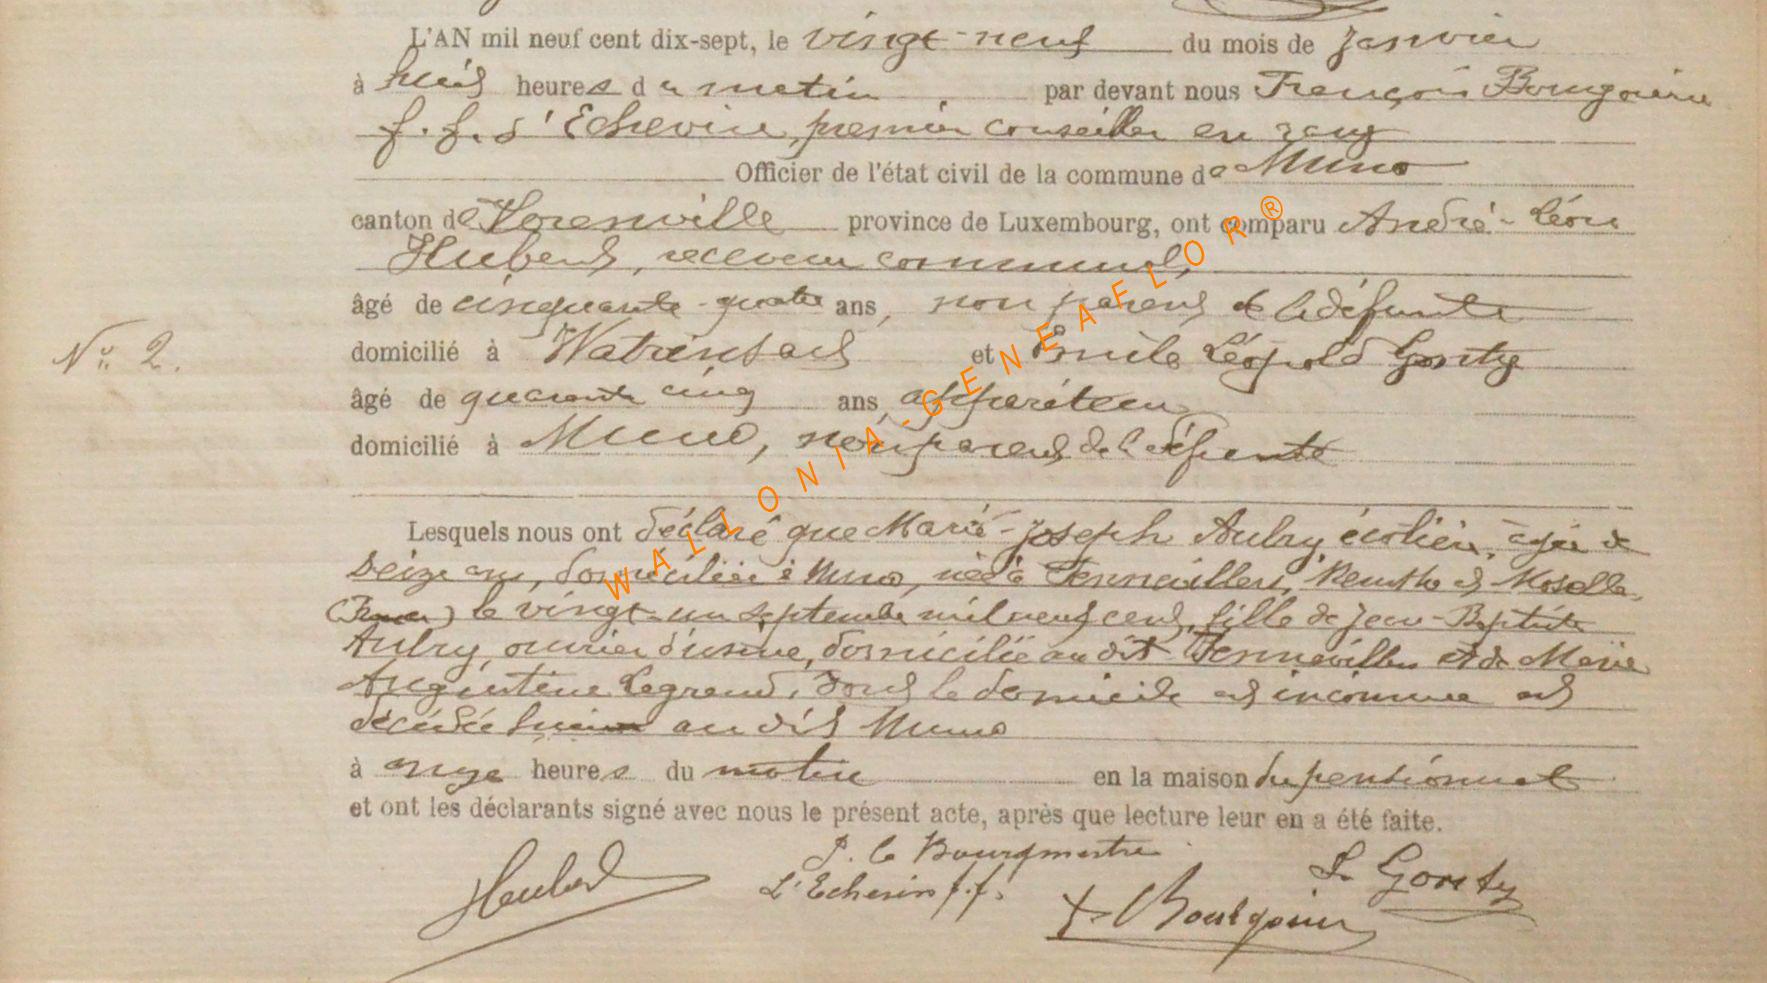 L'AN mil neuf cent dix-sept, le vingt-neuf du mois de Janvier
à huit heures du matin par devant nous François Bourgoin
f. f. d'Echevin, premier conseiller en rang
Officier de l'état civil de la commune de Muno
canton de Florenville province de Luxembourg, ont comparu André-Léon
Hubert, receveur communal,
âgé de cinquante-quatre ans, non parent de la défunte
domicilié à Watrinsart et Emile Léopold Gonty
N° 2.
âgé de quarante cinq ans, appariteur
domicilié à Muno, non parent de la défunte
Lesquels nous ont déclaré que Marie-Joseph Aubry écolière, âgée de
seize ans, domiciliée à Muno, née à Jennevillers, Meurthe et Moselle,
(France) le vingt-un septembre mil neuf cent, fille de Jean-Baptiste
Aubry, ouvrier d'usine, domicilié au dit Jennevillers et de Marie
Augustine Legrand, dont le domicile est inconnu est
décédée au dit Muno
à onze heures du matin en la maison du pensionnat
et ont les déclarants signé avec nous le présent acte, après que lecture leur en a été faite.
P. le Bourgmestre
Hubert L'Echevin f.f. Gonty
Bourgoin
WALLONIA-GENEAFLOR®